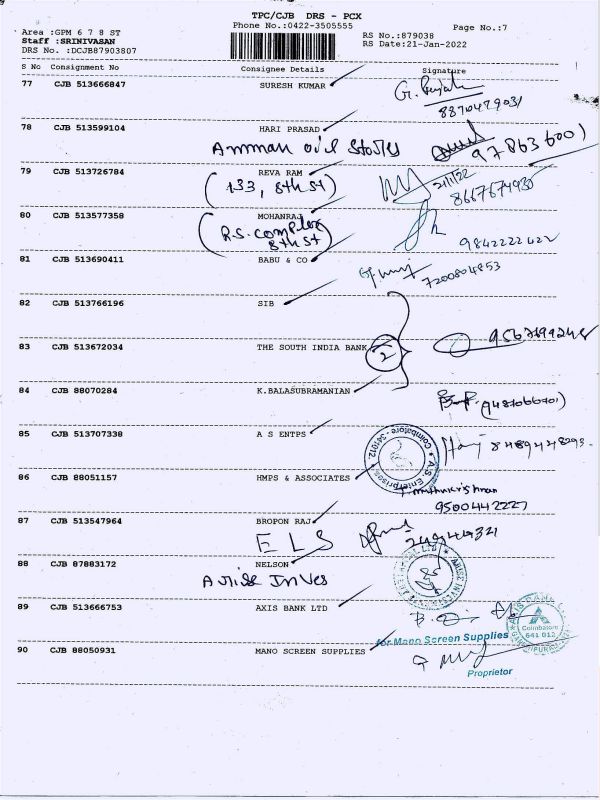 TPC/CJB DRS - PCX
Phone No.:0422-3505555
Page No.:7
Area :GPM 6 7 8 ST
Staff :SRINIVASAN
DRS No. :DCJB87903807
RS No.:879038
RS Date:21-Jan-2022
S No Consignment No Consignee Details Signature
77 CJB 513666847 SURESH KUMAR
8870429031
78 CJB 513599104 HARI PRASAD
Amman oil Stores
79 CJB 513726784 REVA RAM
(133, 8th st)
21/1/22
8667674930
80 CJB 513577358 MOHANRAJ
(R.S. complex
8th st)
9842222622
81 CJB 513690411 BABU & CO
7200804853
82 CJB 513766196 SIB
83 CJB 513672034 THE SOUTH INDIA BANK
2
84 CJB 88070284 K.BALASUBRAMANIAN
85 CJB 513707338 A S ENTPS
A.S. Enterprises
Coimbatore - 641012
86 CJB 88051157 HMPS & ASSOCIATES
Muthukrishnan
9500442227
87 CJB 513547964 BROPON RAJ
ELS
88 CJB 87883172 NELSON
Arise Inves
89 CJB 513666753 AXIS BANK LTD
AXIS BANK
Coimbatore
641 012
90 CJB 88050931 MANO SCREEN SUPPLIES
for Mano Screen Supplies
Proprietor